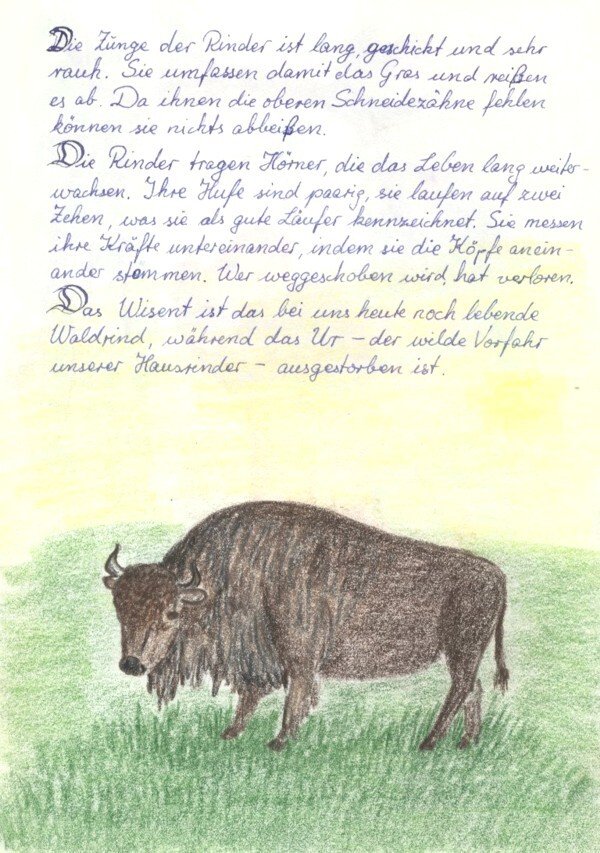 Die Zunge der Rinder ist lang, geschickt und sehr
rauh. Sie umfassen damit das Gras und reißen
es ab. Da ihnen die oberen Schneidezähne fehlen
können sie nichts abbeißen.
Die Rinder tragen Hörner, die das Leben lang weiter-
wachsen. Ihre Hufe sind paarig, sie laufen auf zwei
Zehen, was sie als gute Läufer kennzeichnet. Sie messen
ihre Kräfte untereinander, indem sie die Köpfe anein-
ander stemmen. Wer weggeschoben wird, hat verloren.
Das Wisent ist das bei uns heute noch lebende
Waldrind, während das Ur – der wilde Vorfahr
unserer Hausrinder – ausgestorben ist.